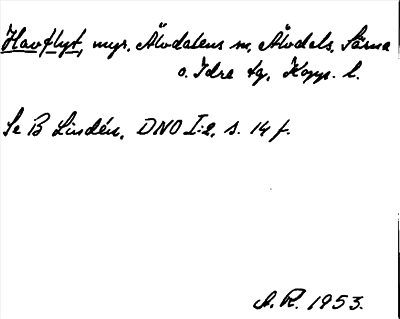 Havflyt, myr. Älvdalens sn, Älvdals, Särna
o. Idre tg, Kopp. l.
Se B Lindén, DNO I:2, s. 14 f.
A. R. 1953.